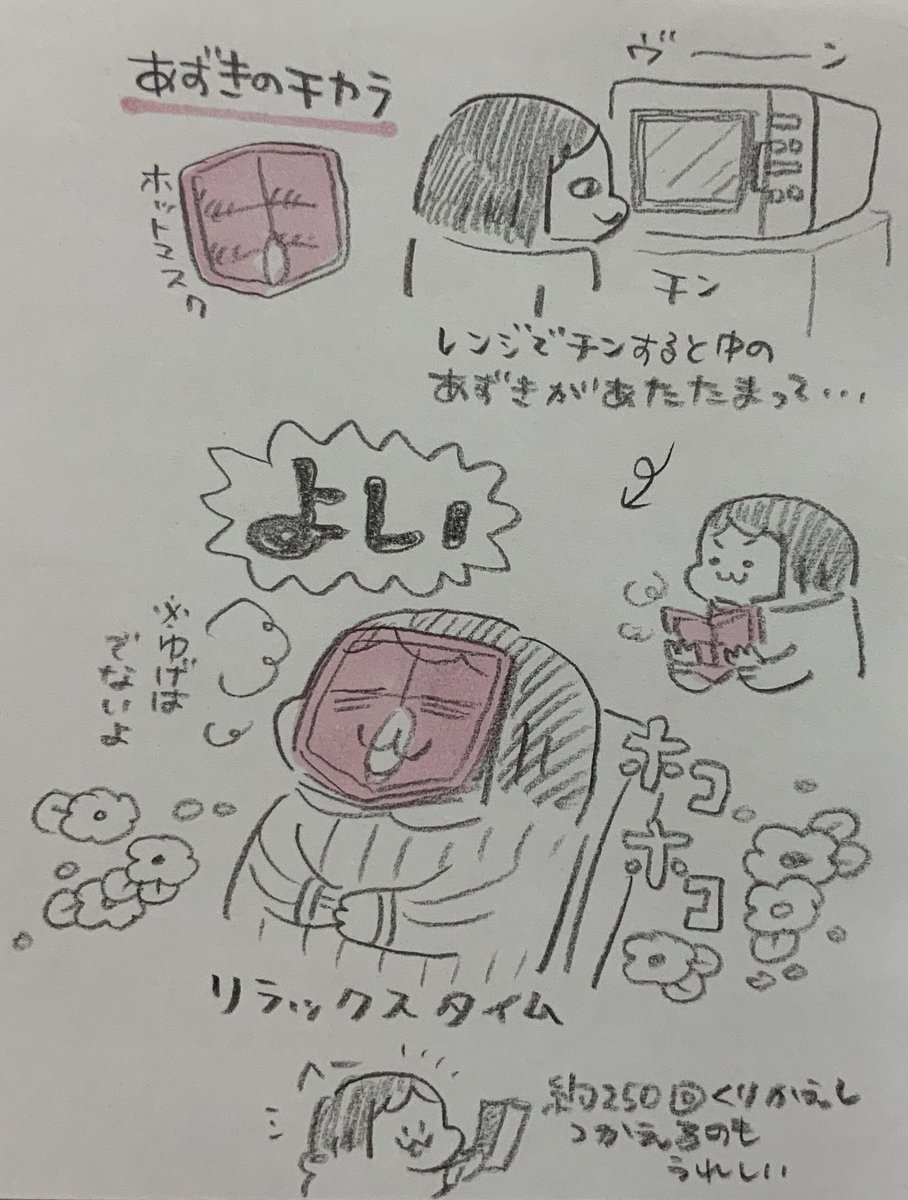 あずきのチカラ
ホットマスク
ヴーーン
チン
レンジでチンすると中の
あずきがあたたまって・・・
よい
※ゆげは
でないよ
ホコホコ
リラックスタイム
へー
約250回くりかえし
つかえるのも
うれしい